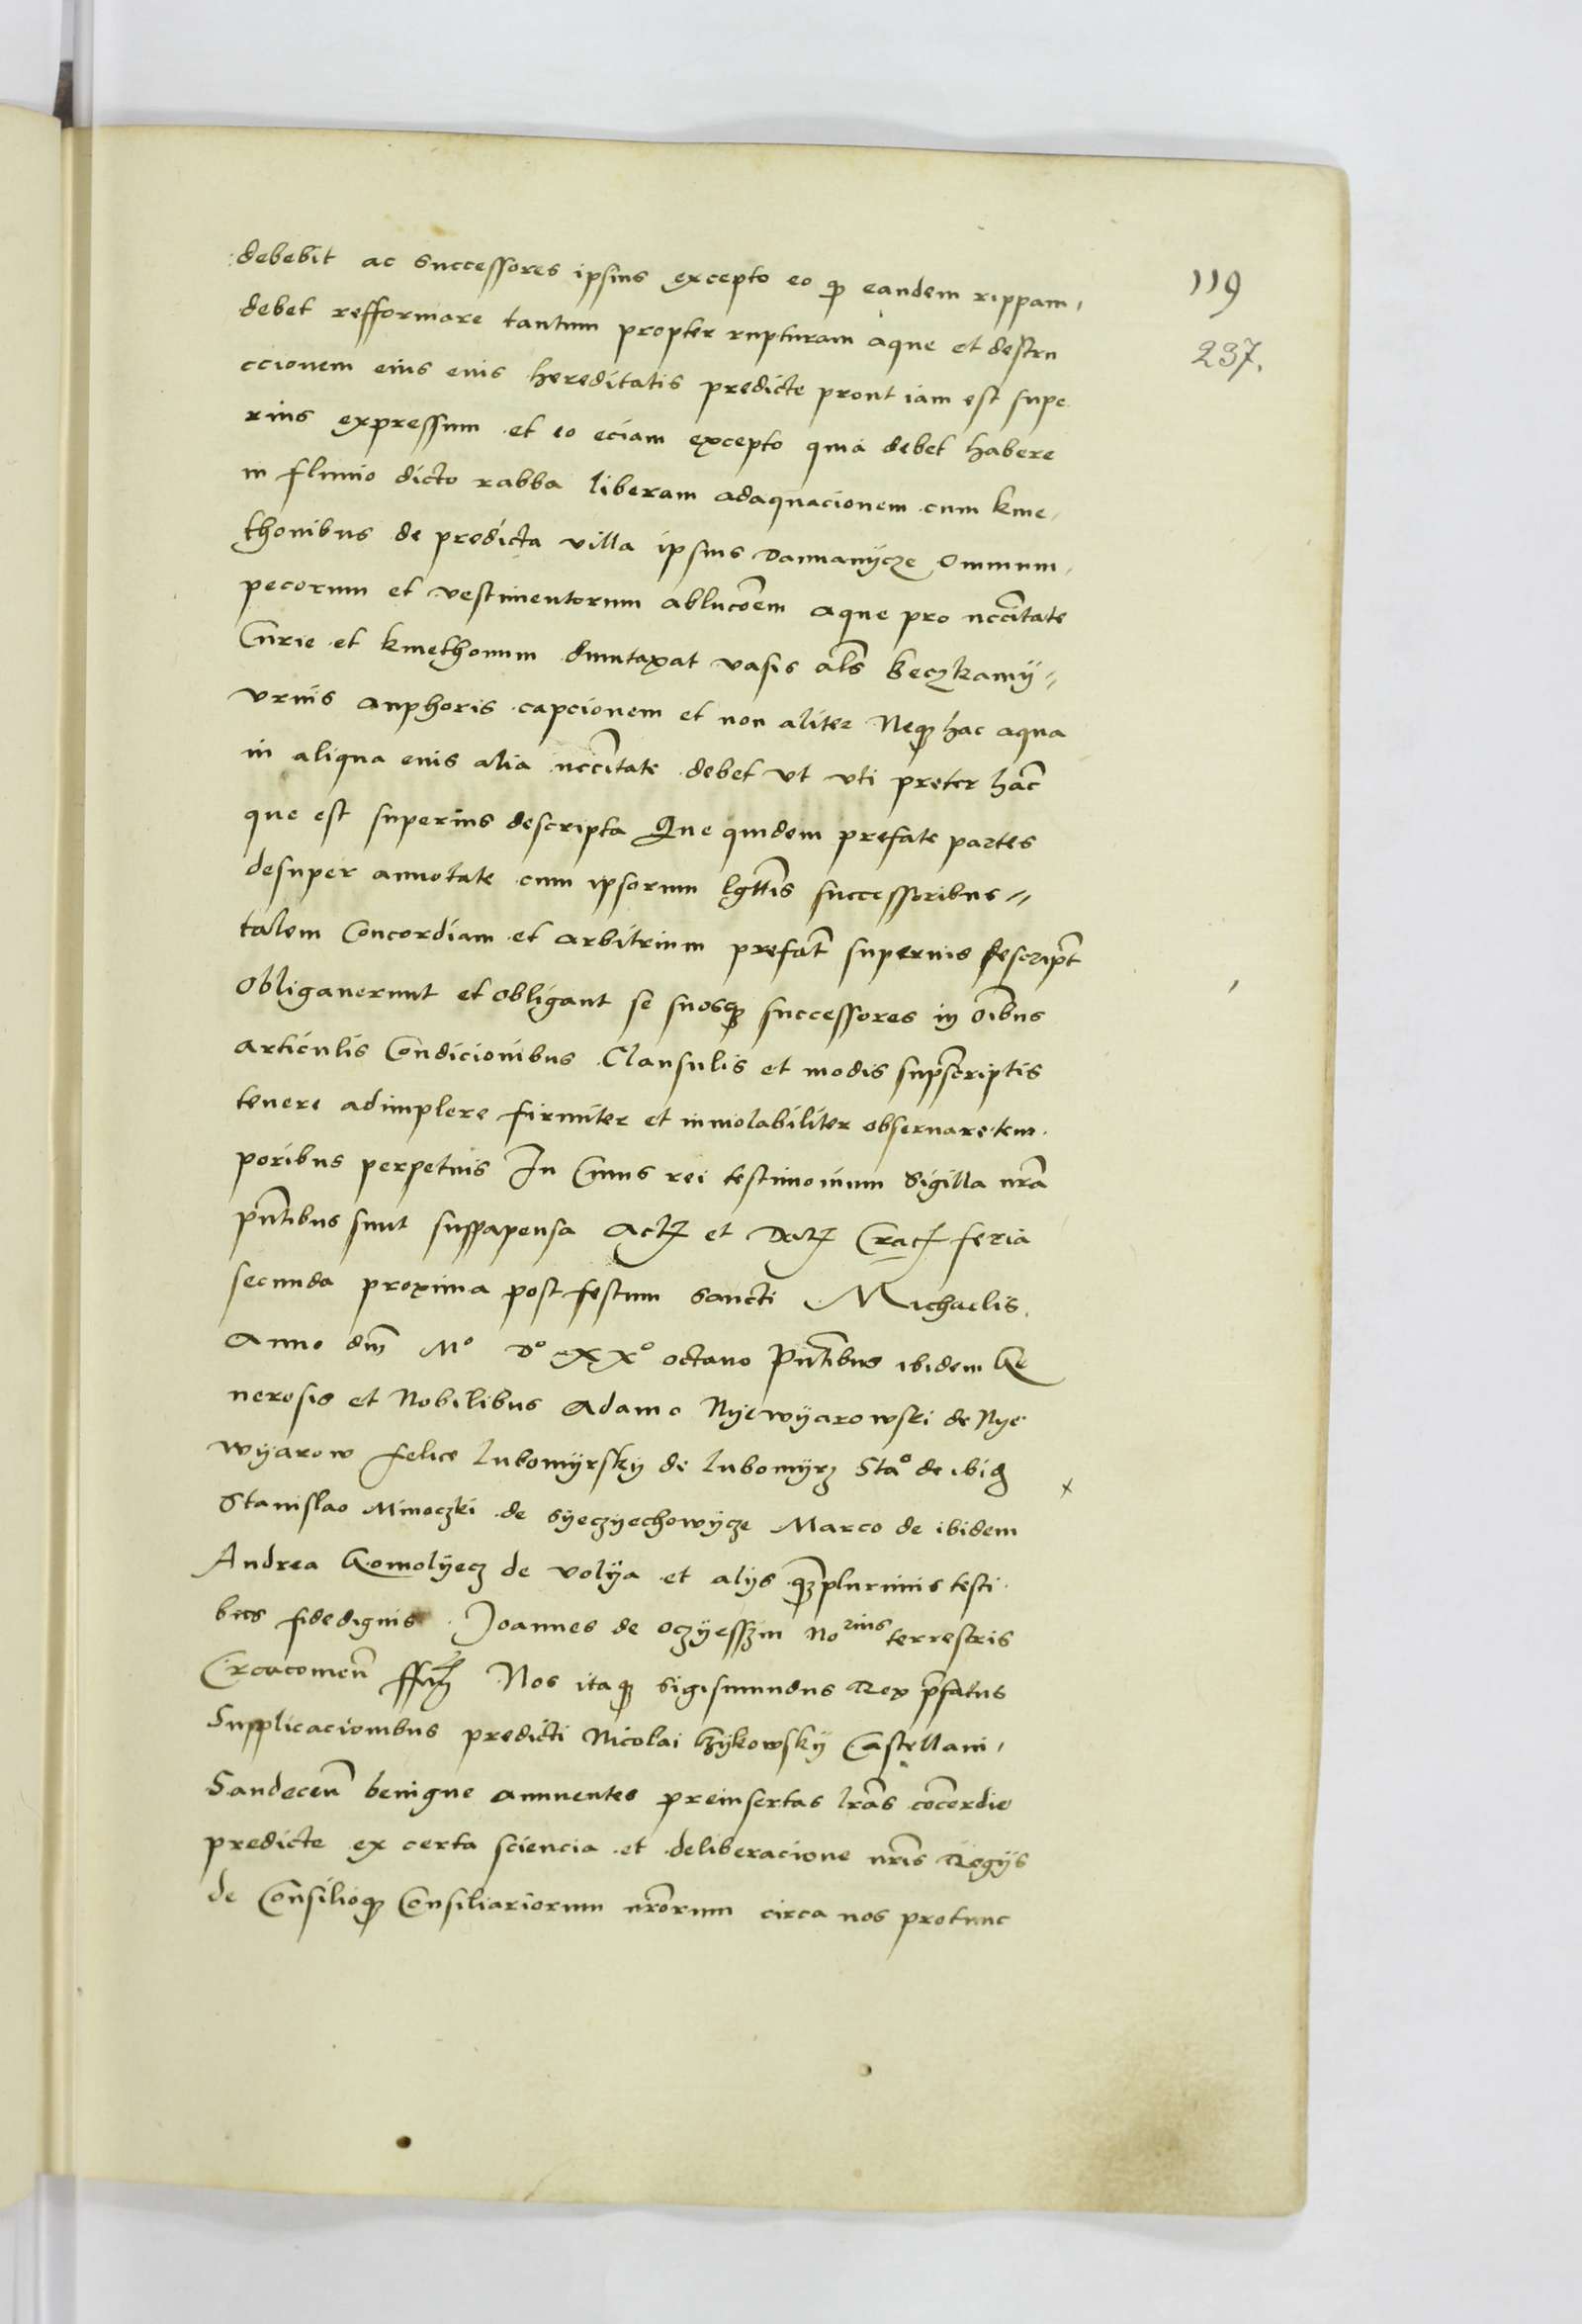 debebit ac successores ipsius excepto eo qꝫ eandem rippam,
119
debet refformare tantum propter rupturam aque et destru
237.
ccionem eius eius hereditatis predicte prout iam est supe
rius expressum et eo eciam excepto quia debet habere
in fluuio dicto rabba liberam adaquacionem cum kme,
thonibus de predicta villa ipsius Damanycze Omnium,
pecorum et vestimentorum abluc̄oem aque pro nccītate
Curie et kmethonum dumtaxat vasis al̄s beczkamy //
vrnis anphoris capcionem et non aliter Neqꝫ hac aqua
in aliqua eius alia nccītate debet vt vti preter hac̄
que est superius descripta Que quidem prefate partes
desuper annotate cum ipsorum lgtt̄is successoribus //
talem Concordiam et arbitrium prefat̄ superius descript̄
Obligauerunt et obligant se suosqꝫ successores in oībus
articulis Condicionibus Clausulis et modis supr̄scriptis
tenere adimplere firmiter et inuiolabiliter obseruare tem
poribus perpetuis In Cuius rei testimonium Sigilla nr̄a
pn̄tibus sunt suppapensa Actꝫ et Datꝫ Cracꝫ feria
secunda proxima post festum sancti Michaelis.
Anno dn̄i Mº Dº XXº octauo Pn̄tibus ibidem Ge
nerosis et Nobilibus Adamo Nyewyarowski de Nye
wyarow felice lubomyrsky de lubomyrz Staº de ibid̄ x
Stanislao Minoczki de syeczyechowycze Marco de ibidem
Andrea Gomolyecz de volya et alijs qꝫplurimis testi
bus fidedignis Joannes de oczyesszin Noʳⁱᵘˢ terrestris
Crcacomen̄ Nos itaqꝫ Sigismundus Rex pr̄fatus
Supplicacionibus predicti Nicolai Czykowsky Castellani,
Sandecen̄ benigne annuentes preinsertas lr̄as cōcordie
predicte ex certa sciencia et deliberacione nr̄is Regijs
de Consilioqꝫ Consiliariorum nr̄orum circa nos protunc